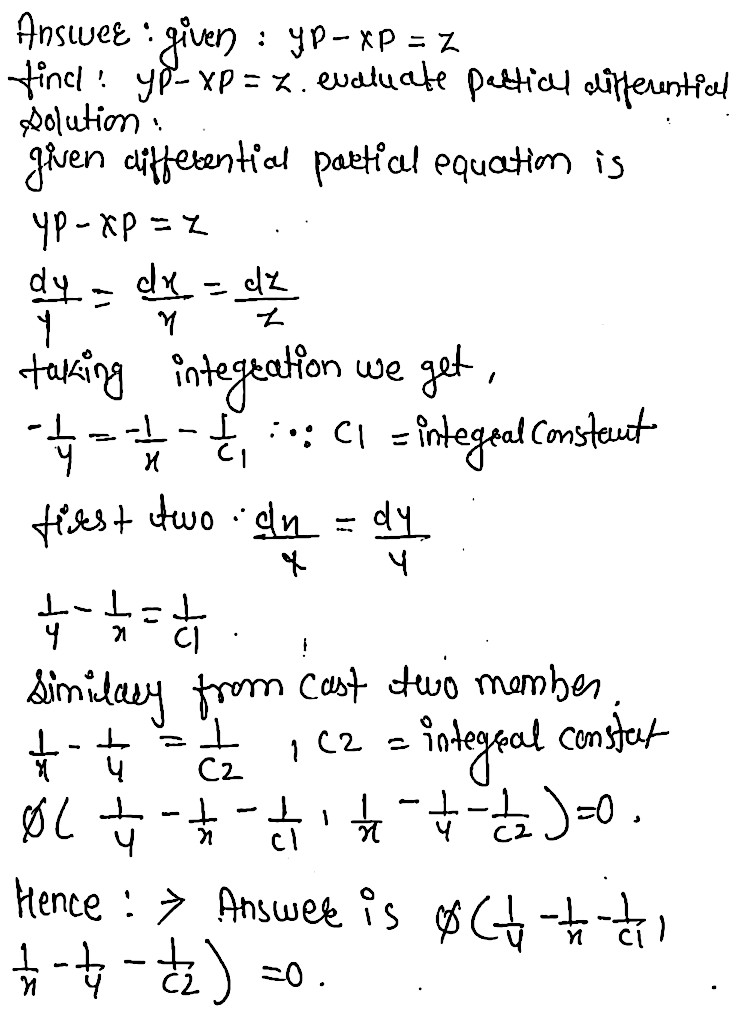 Answer : given : yp - xp = z
find : yp - xp = z. evaluate partial differential
solution :
given differential partial equation is
yp - xp = z
dy/y = dx/x = dz/z
taking integration we get,
-1/y = -1/x - 1/c1 ∵ c1 = integral constant
first two : dx/x = dy/y
1/y - 1/x = 1/c1
similary from cast two member,
1/x - 1/y = 1/c2 , c2 = integral constat
Ø( 1/y - 1/x - 1/c1 , 1/x - 1/y - 1/c2 ) = 0 .
Hence : → Answer is Ø( 1/y - 1/x - 1/c1 ,
1/x - 1/y - 1/c2 ) = 0 .